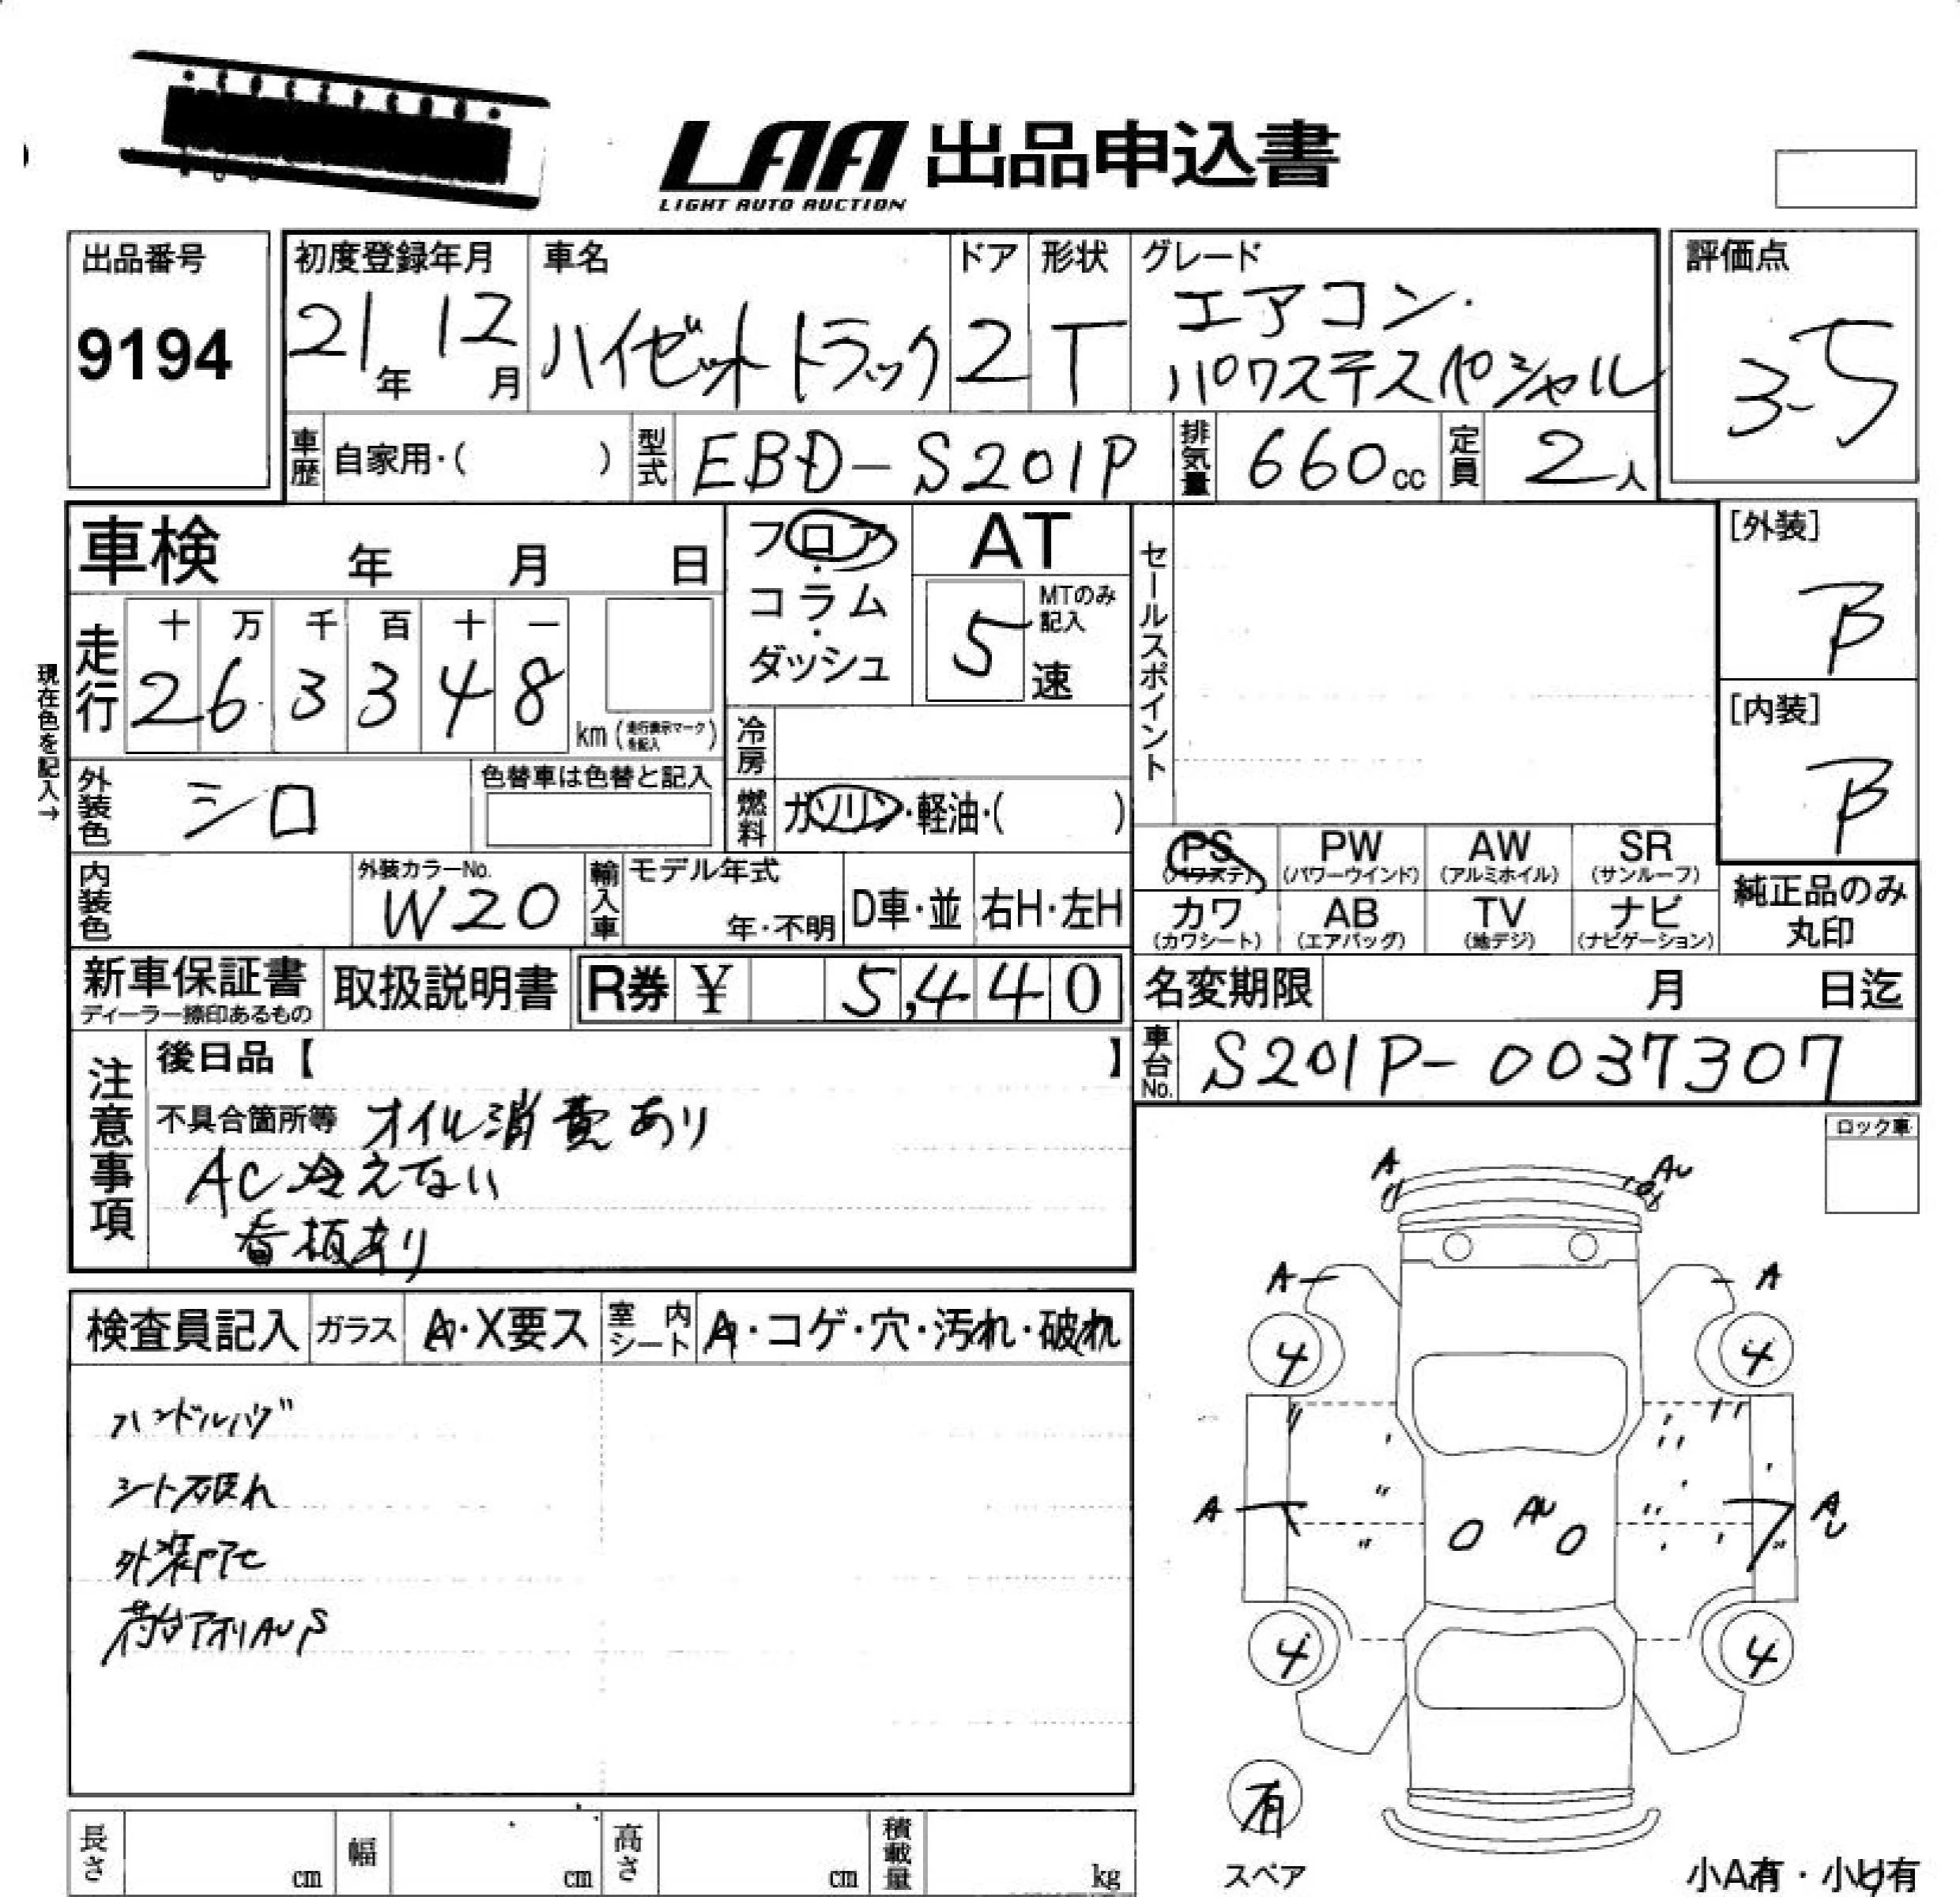 LAA 出品申込書
LIGHT AUTO AUCTION
出品番号
9194
初度登録年月
21年 12月
車名
ハイゼットトラック
ドア
2
形状
T
グレード
エアコン・
パワステスペシャル
評価点
3.5
車歴 自家用・( )
型式 EBD-S201P
排気量 660cc
定員 2人
車検 年 月 日
フロア・
コラム・
ダッシュ
AT
MTのみ記入
5速
セールスポイント
[外装]
B
[内装]
B
現在色を記入→
走行
十 万 千 百 十 一
2 6 3 3 4 8
km (走行表示マークを記入)
冷房
外装色 シロ
色替車は色替と記入
燃料 ガソリン・軽油・( )
PS (パワステ)
PW (パワーウインド)
AW (アルミホイル)
SR (サンルーフ)
カワ (カワシート)
AB (エアバッグ)
TV (地デジ)
ナビ (ナビゲーション)
純正品のみ
丸印
内装色
外装カラーNo.
W20
輸入車
モデル年式
年・不明
D車・並
右H・左H
新車保証書
ディーラー捺印あるもの
取扱説明書
R券 ¥ 5,440
名変期限 月 日迄
車台No. S201P-0037307
注意事項
後日品【 】
不具合箇所等 オイル消費あり
AC冷えない
看板あり
ロック車
検査員記入
ガラス A・X要ス
室内シート A・コゲ・穴・汚れ・破れ
ハンドルハゲ
シート破れ
荷台アオリAUS
A AU
A A
4 4
A AU AU
4 4
有
スペア
小A有・小U有
長さ cm
幅 cm
高さ cm
積載量 kg